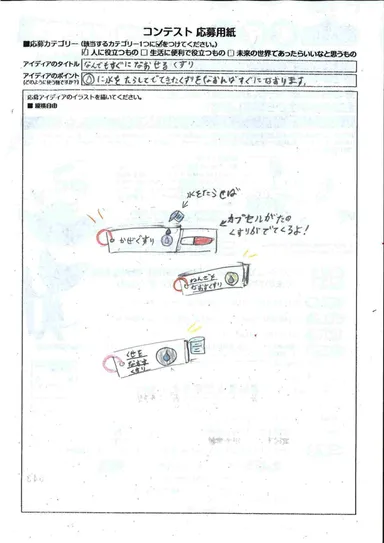 コンテスト 応募用紙
■応募カテゴリー (該当するカテゴリー1つに☑をつけてください。)
☑ 人に役立つもの □ 生活に便利で役立つもの □ 未来の世界であったらいいなと思うもの
アイディアのタイトル なんでもすぐになおせるくすり
アイディアのポイント
(どのように使う物ですか?)
に水をたらしてでてきたくすりをなおればすぐになおります。
応募アイディアのイラストを描いてください。
■ 縦横自由
水をたらせば
カプセルがたの
くすりがでてくるよ!
かぜぐすり
なおすくすり
くせを
なおす
くすり